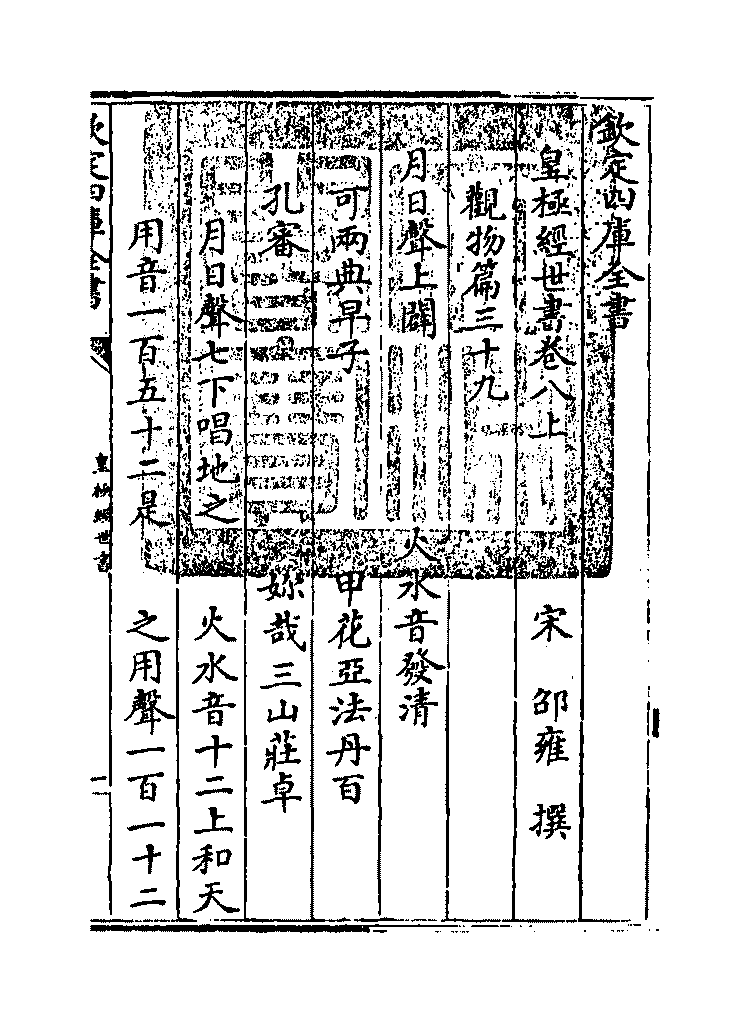 欽定四庫全書
皇極經世書卷八上
宋 邵雍 撰
觀物篇三十九
月日聲上闢
火水音發清
可兩典早子
甲花亞法丹百
孔審
妳哉三山莊卓
月日聲七下唱地之
火水音十二上和天
用音一百五十二是
之用聲一百一十二
欽定四庫全書
皇極經世書
一